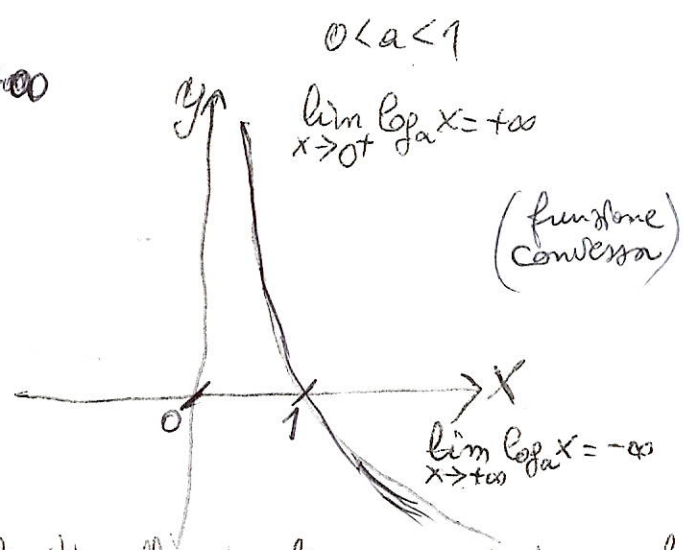 0<a<1
∞
y
lim logₐ x = +∞
x→0⁺
(funzione
convessa)
x
0
1
lim logₐ x = -∞
x→+∞